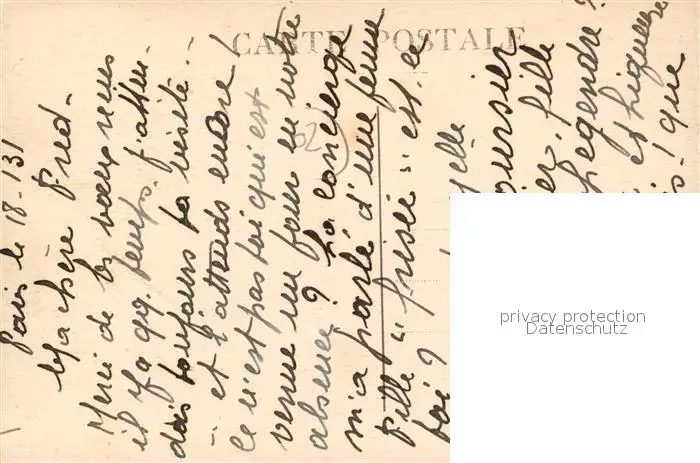 CARTE POSTALE
Paris le 18-1-31
Ma chère Pred.
Merci de tes vœux reçus
il y a qq. temps. J'atten-
dais toujours ta visite...
... et l'attends encore!
Ce n'est pas toi qui est
venue un jour en notre
absence? La concierge
m'a parlé d'une jeune
fille "frisée" est-ce
toi?
elle
fille
Legendre?
et
que
privacy protection
Datenschutz